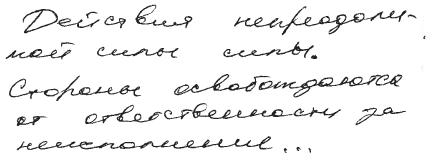 Действия непреодоли-
мой силы силы.
Стороны освобождаются
от ответственности за
неисполнение...